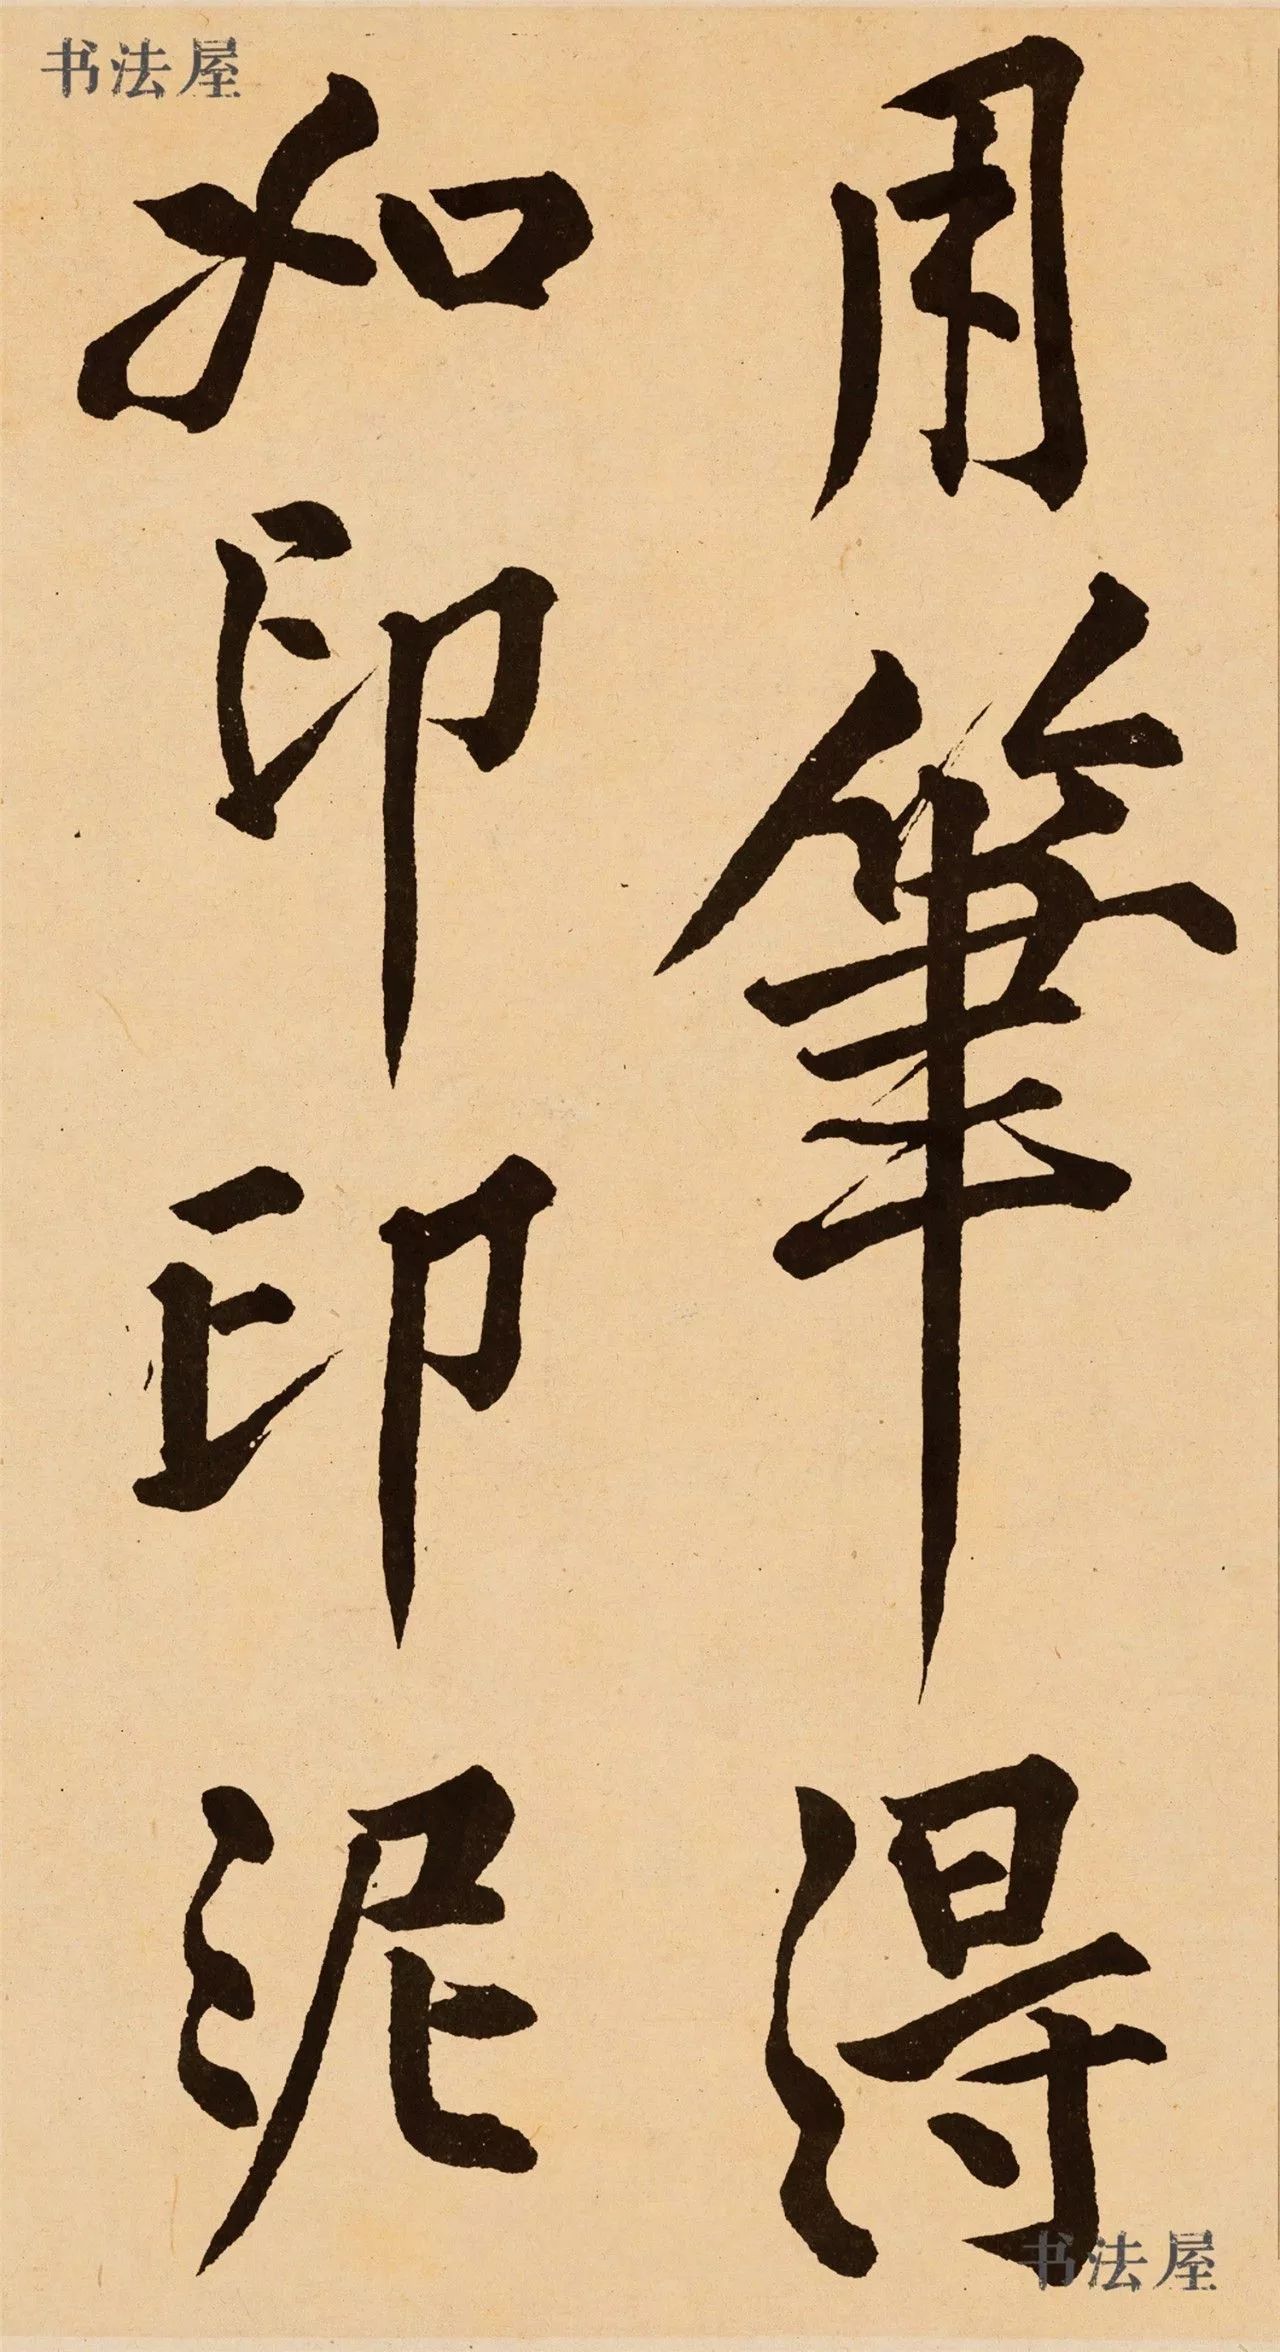 书法屋
用筆得
如印印泥
书法屋